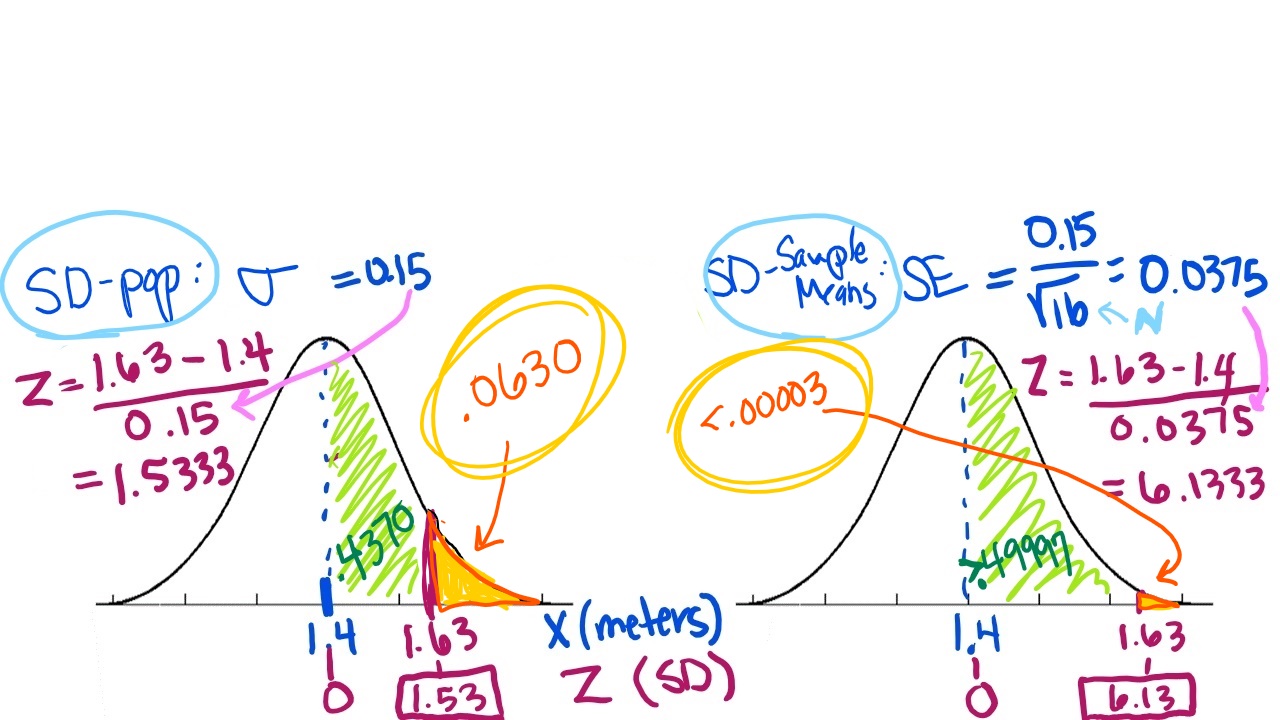 SD-pop: σ = 0.15
Z = 1.63 - 1.4 / 0.15
= 1.5333
.0630
.4370
1.4
1.63
X (meters)
0
1.53
Z (SD)
SD-Sample Means: SE = 0.15 / √16 = 0.0375
N
Z = 1.63 - 1.4 / 0.0375
= 6.1333
<.00003
>.49997
1.4
1.63
0
6.13